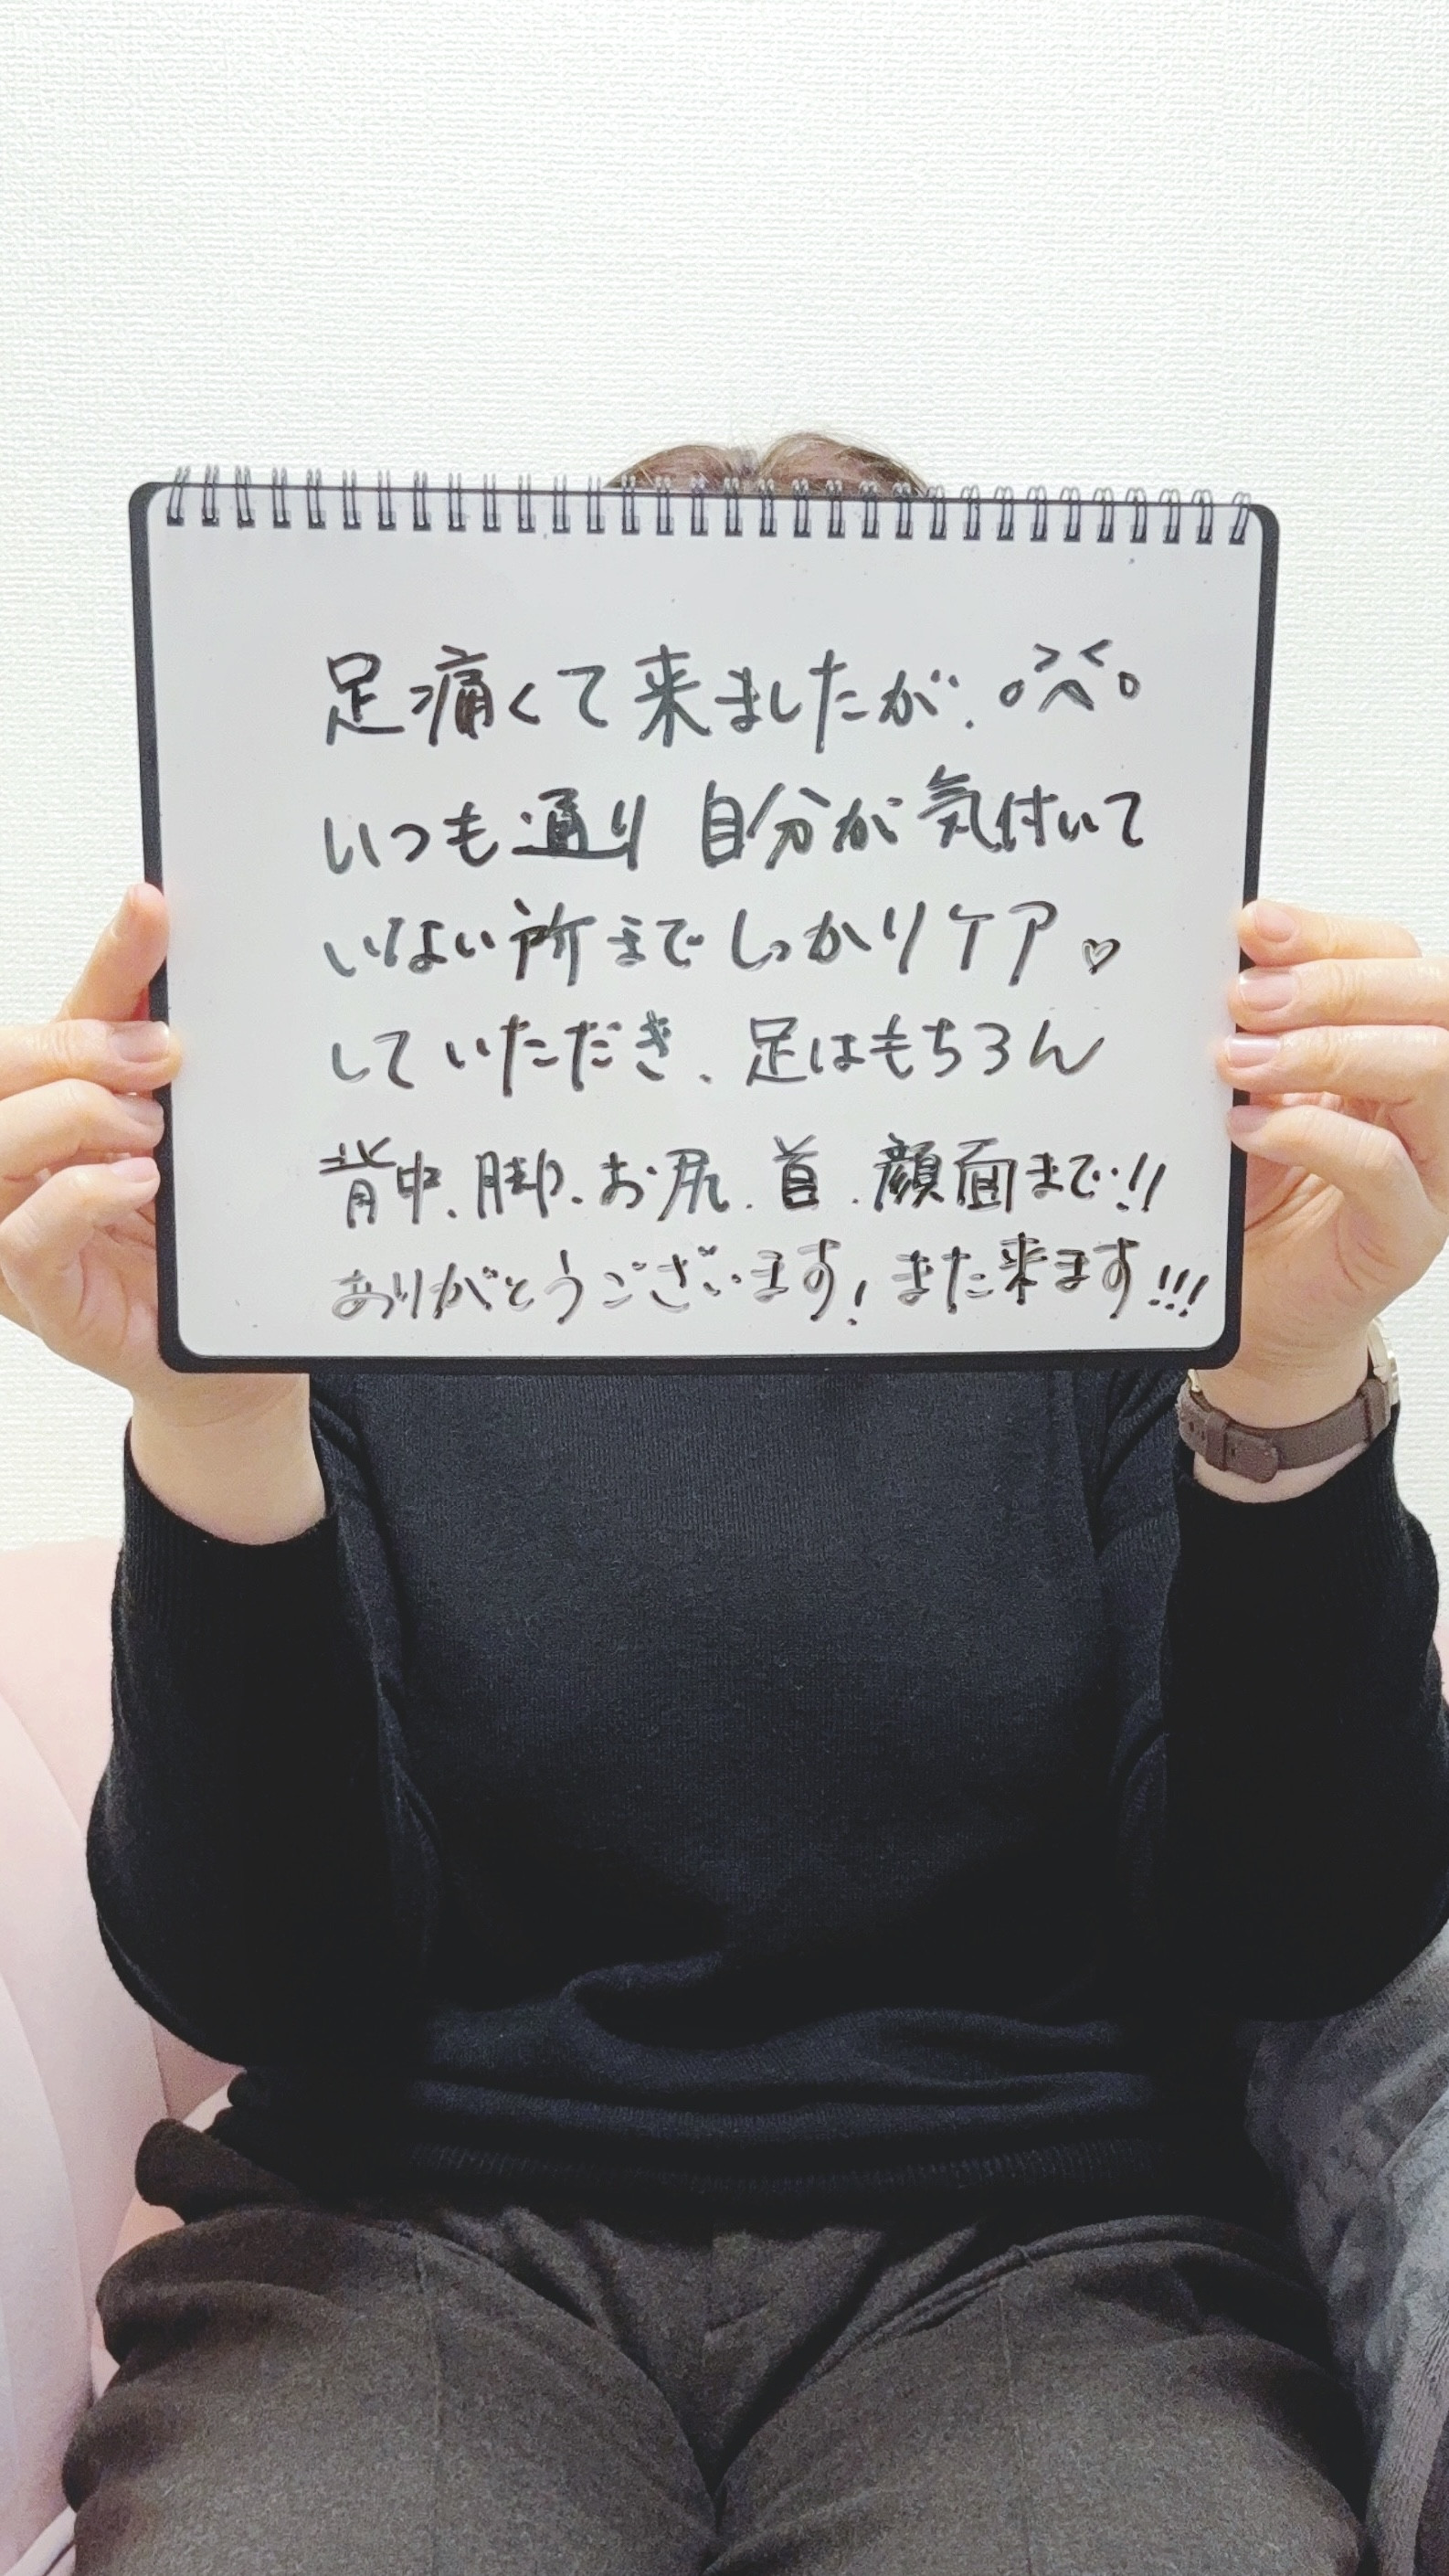 足痛くて来ましたが、
いつも通り 自分が気付いて
いない所までしっかりケア♡
していただき、足はもちろん
背中、脚、お尻、首、顔面まで!!
ありがとうございます! また来ます!!!